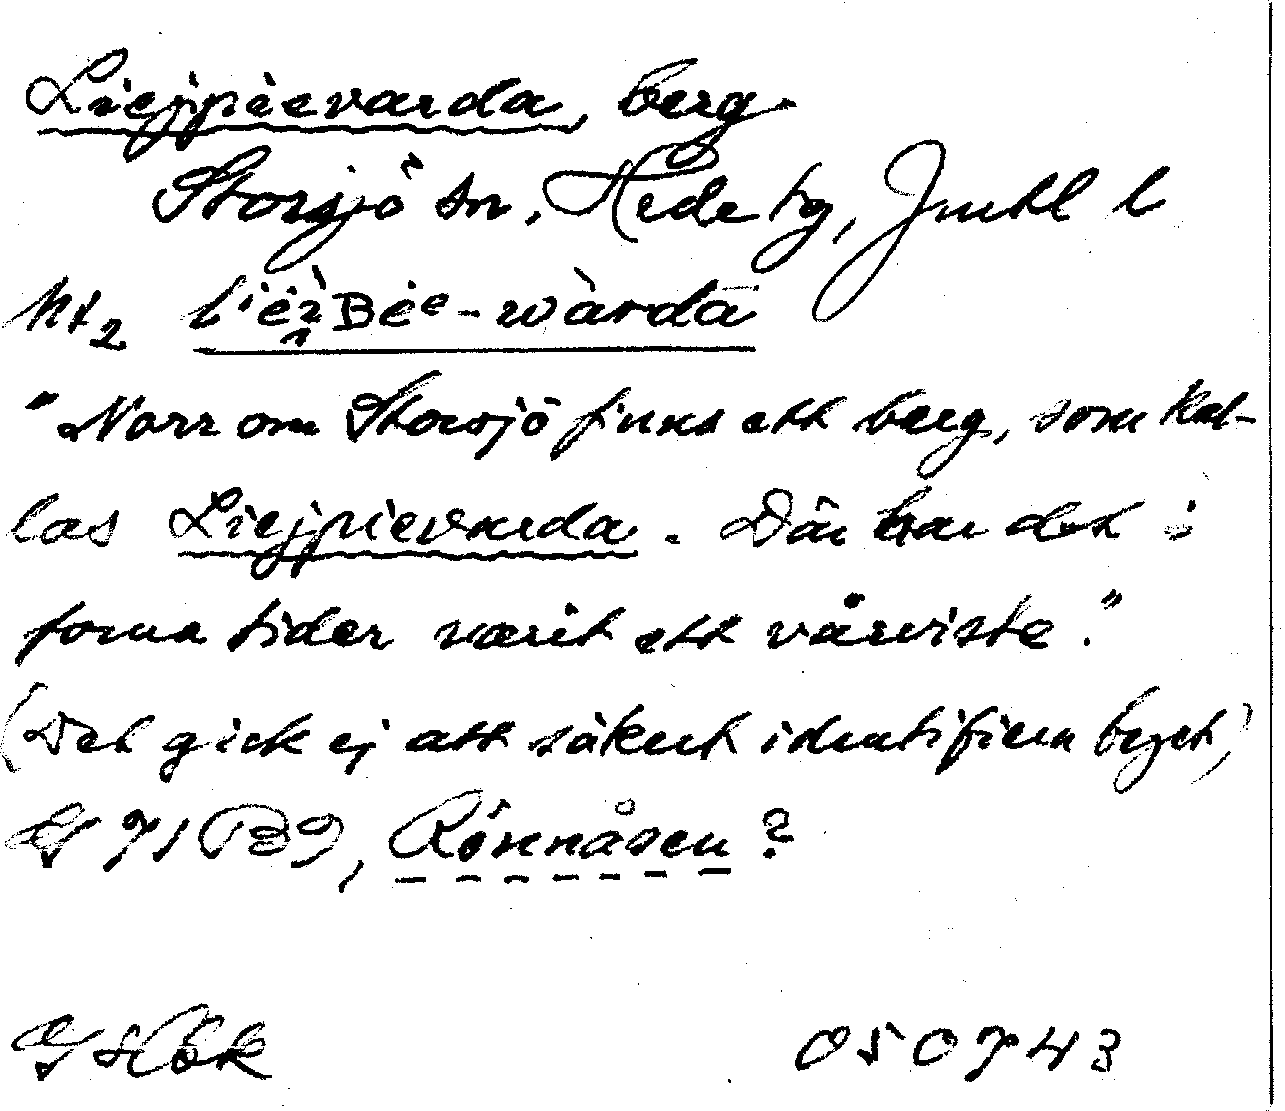 Liejpievarda, berg
Storsjö sn, Hede tg, Jmtl l
Ht2 li'ëi̯Bėᵉ-wàrda
"Norr om Storsjö finns ett berg, som kal-
las Liejpievarda. Där har det i
forna tider varit ett vårviste."
(Det gick ej att säkert identifiera berget)
G 71 B9, Rönnåsen?
050743